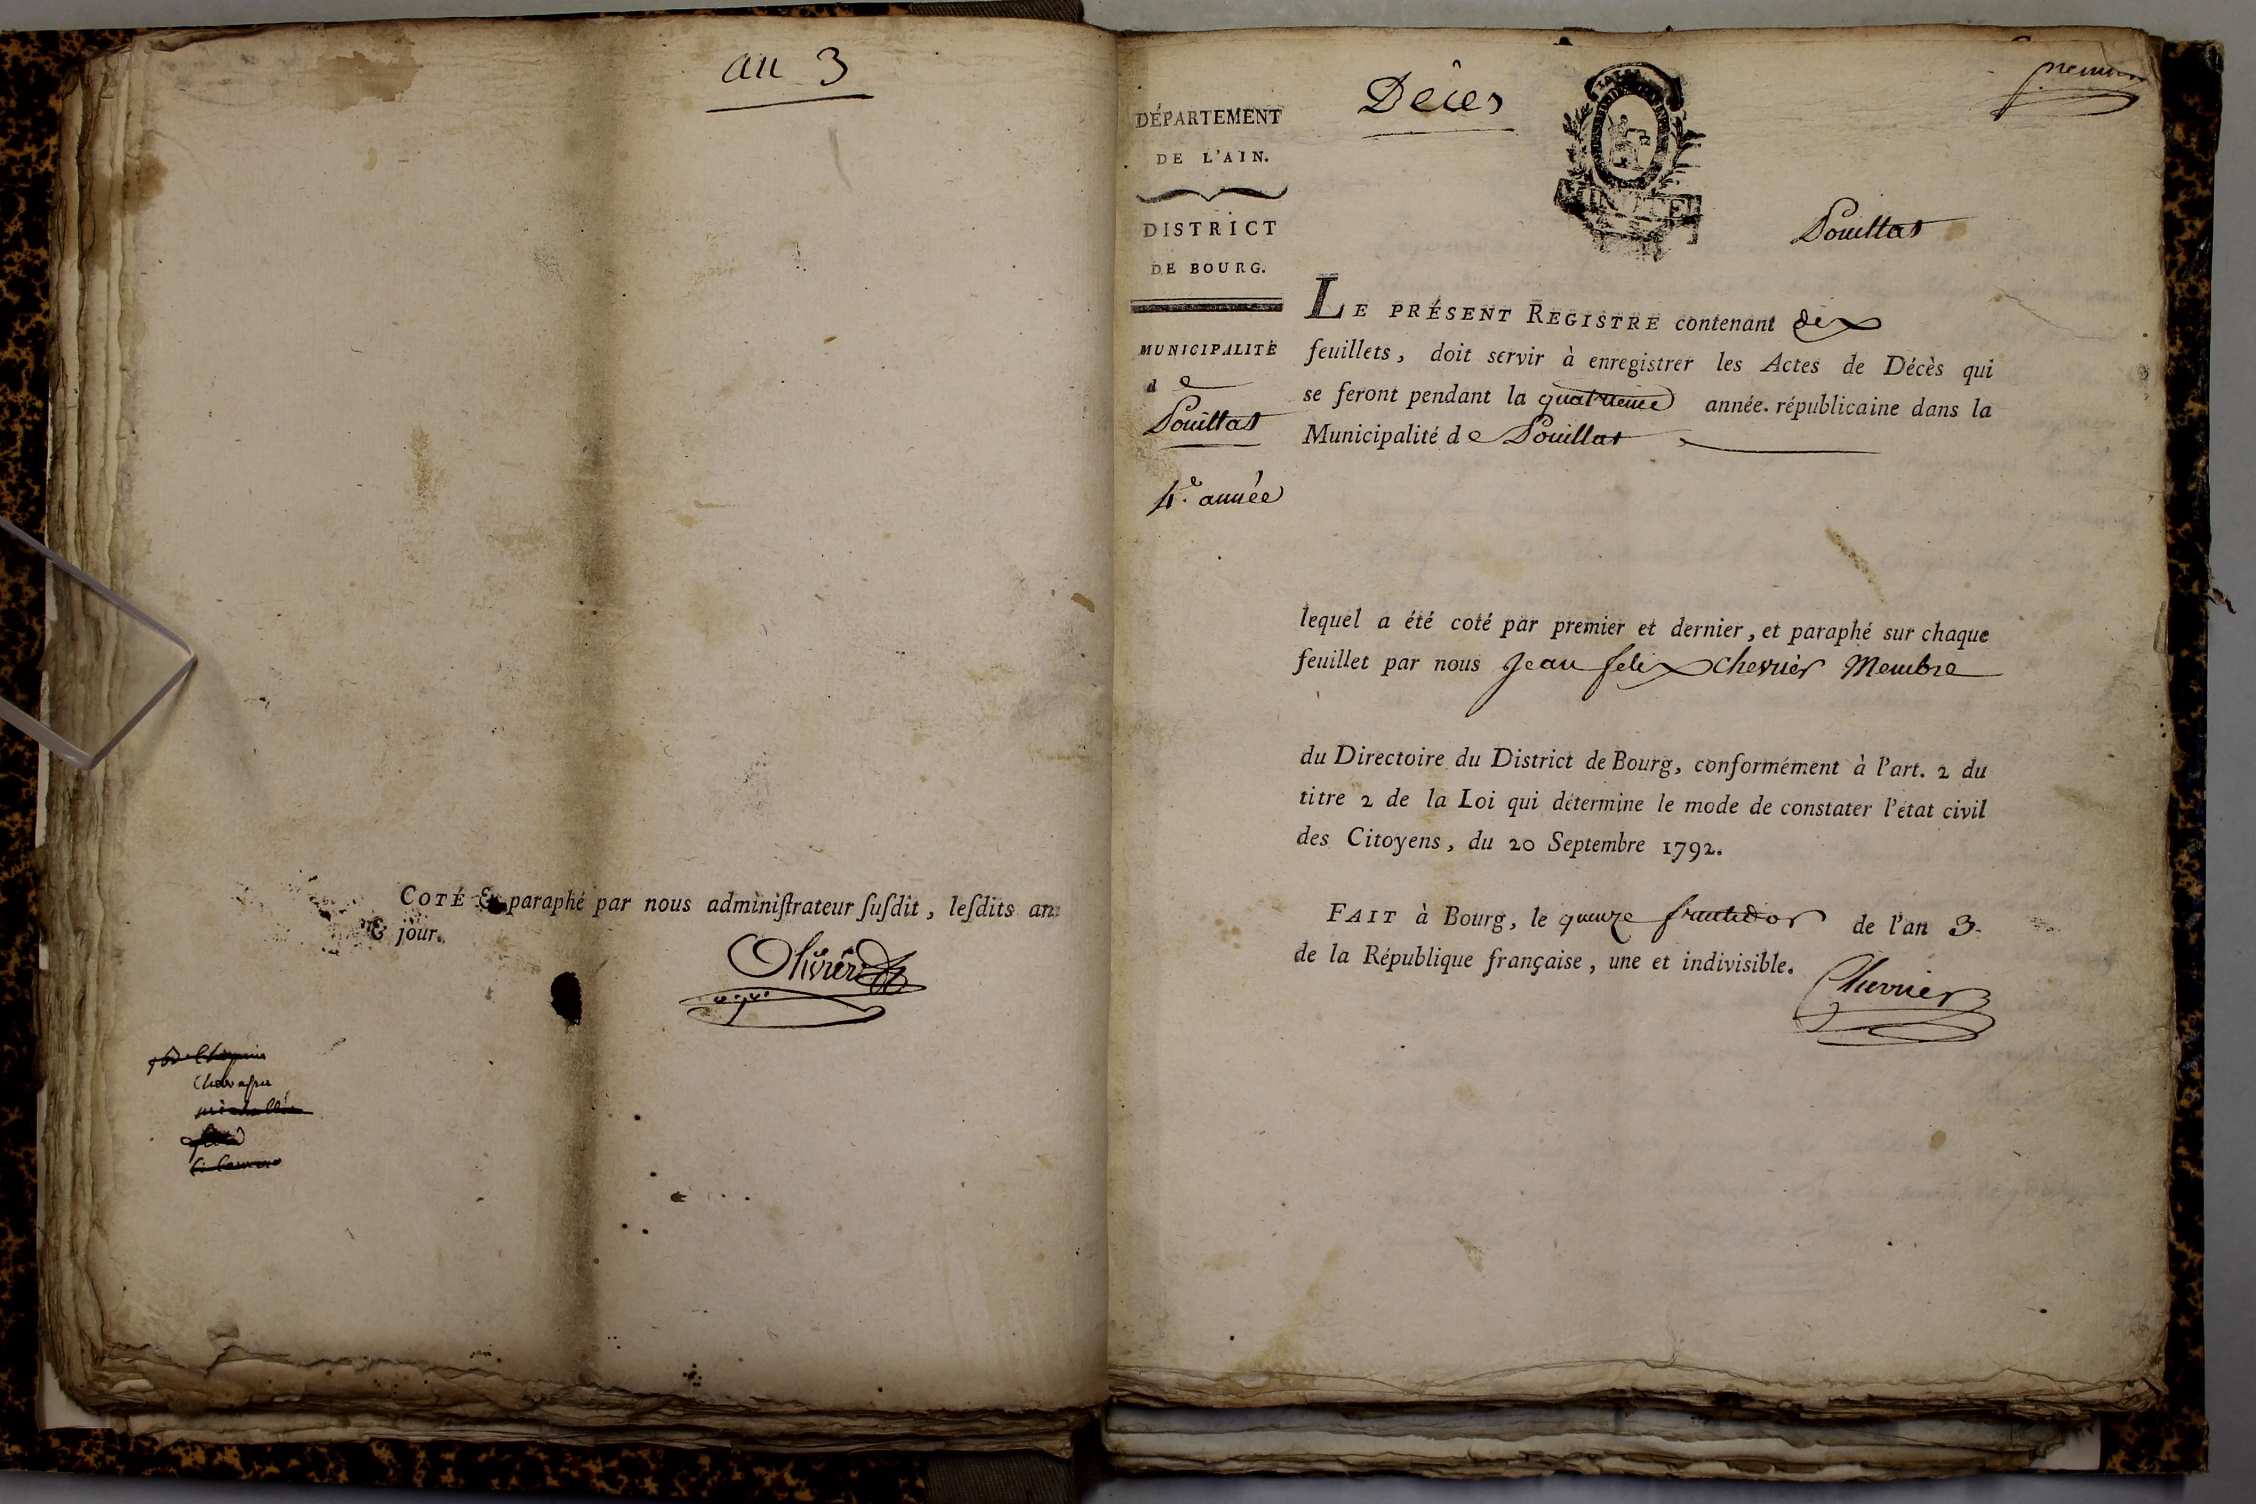 an 3
COTÉ & paraphé par nous adminiſtrateur ſuſdit, leſdits an
& jour.
Olivier
Décès
premier
DÉPARTEMENT
DE L'AIN.
DISTRICT
DE BOURG.
MUNICIPALITÉ
de
Pouillat
4.e année
Pouillat
LE PRÉSENT REGISTRE contenant dix
feuillets, doit servir à enregistrer les Actes de Décès qui
se feront pendant la quatrieme année républicaine dans la
Municipalité de Pouillat
lequel a été coté par premier et dernier, et paraphé sur chaque
feuillet par nous Jean felix Chevrier Membre
du Directoire du District de Bourg, conformément à l'art. 2 du
titre 2 de la Loi qui détermine le mode de constater l'état civil
des Citoyens, du 20 Septembre 1792.
FAIT à Bourg, le quinze fructidor de l'an 3.
de la République française, une et indivisible.
Chevrier